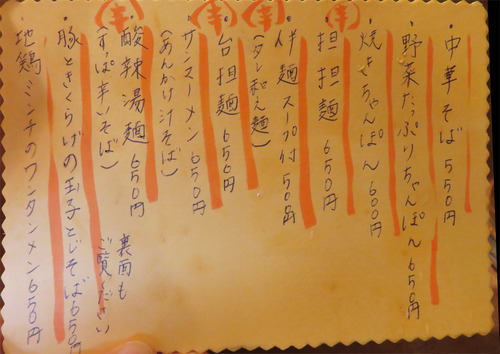 ・中華そば 550円
・野菜たっぷりちゃんぽん 650円
・焼きちゃんぽん 600円
辛
・担担麺 650円
辛
・伴麺 スープ付 50円
(タレ和え麺)
辛
・台担麺 650円
・サンマーメン 650円
(あんかけ汁そば)
辛
・酸辣湯麺 650円
(すっぱ辛いそば)
・豚ときくらげの玉子とじそば 650円
・地鶏ミンチのワンタンメン 650円
裏面も
ご覧ください